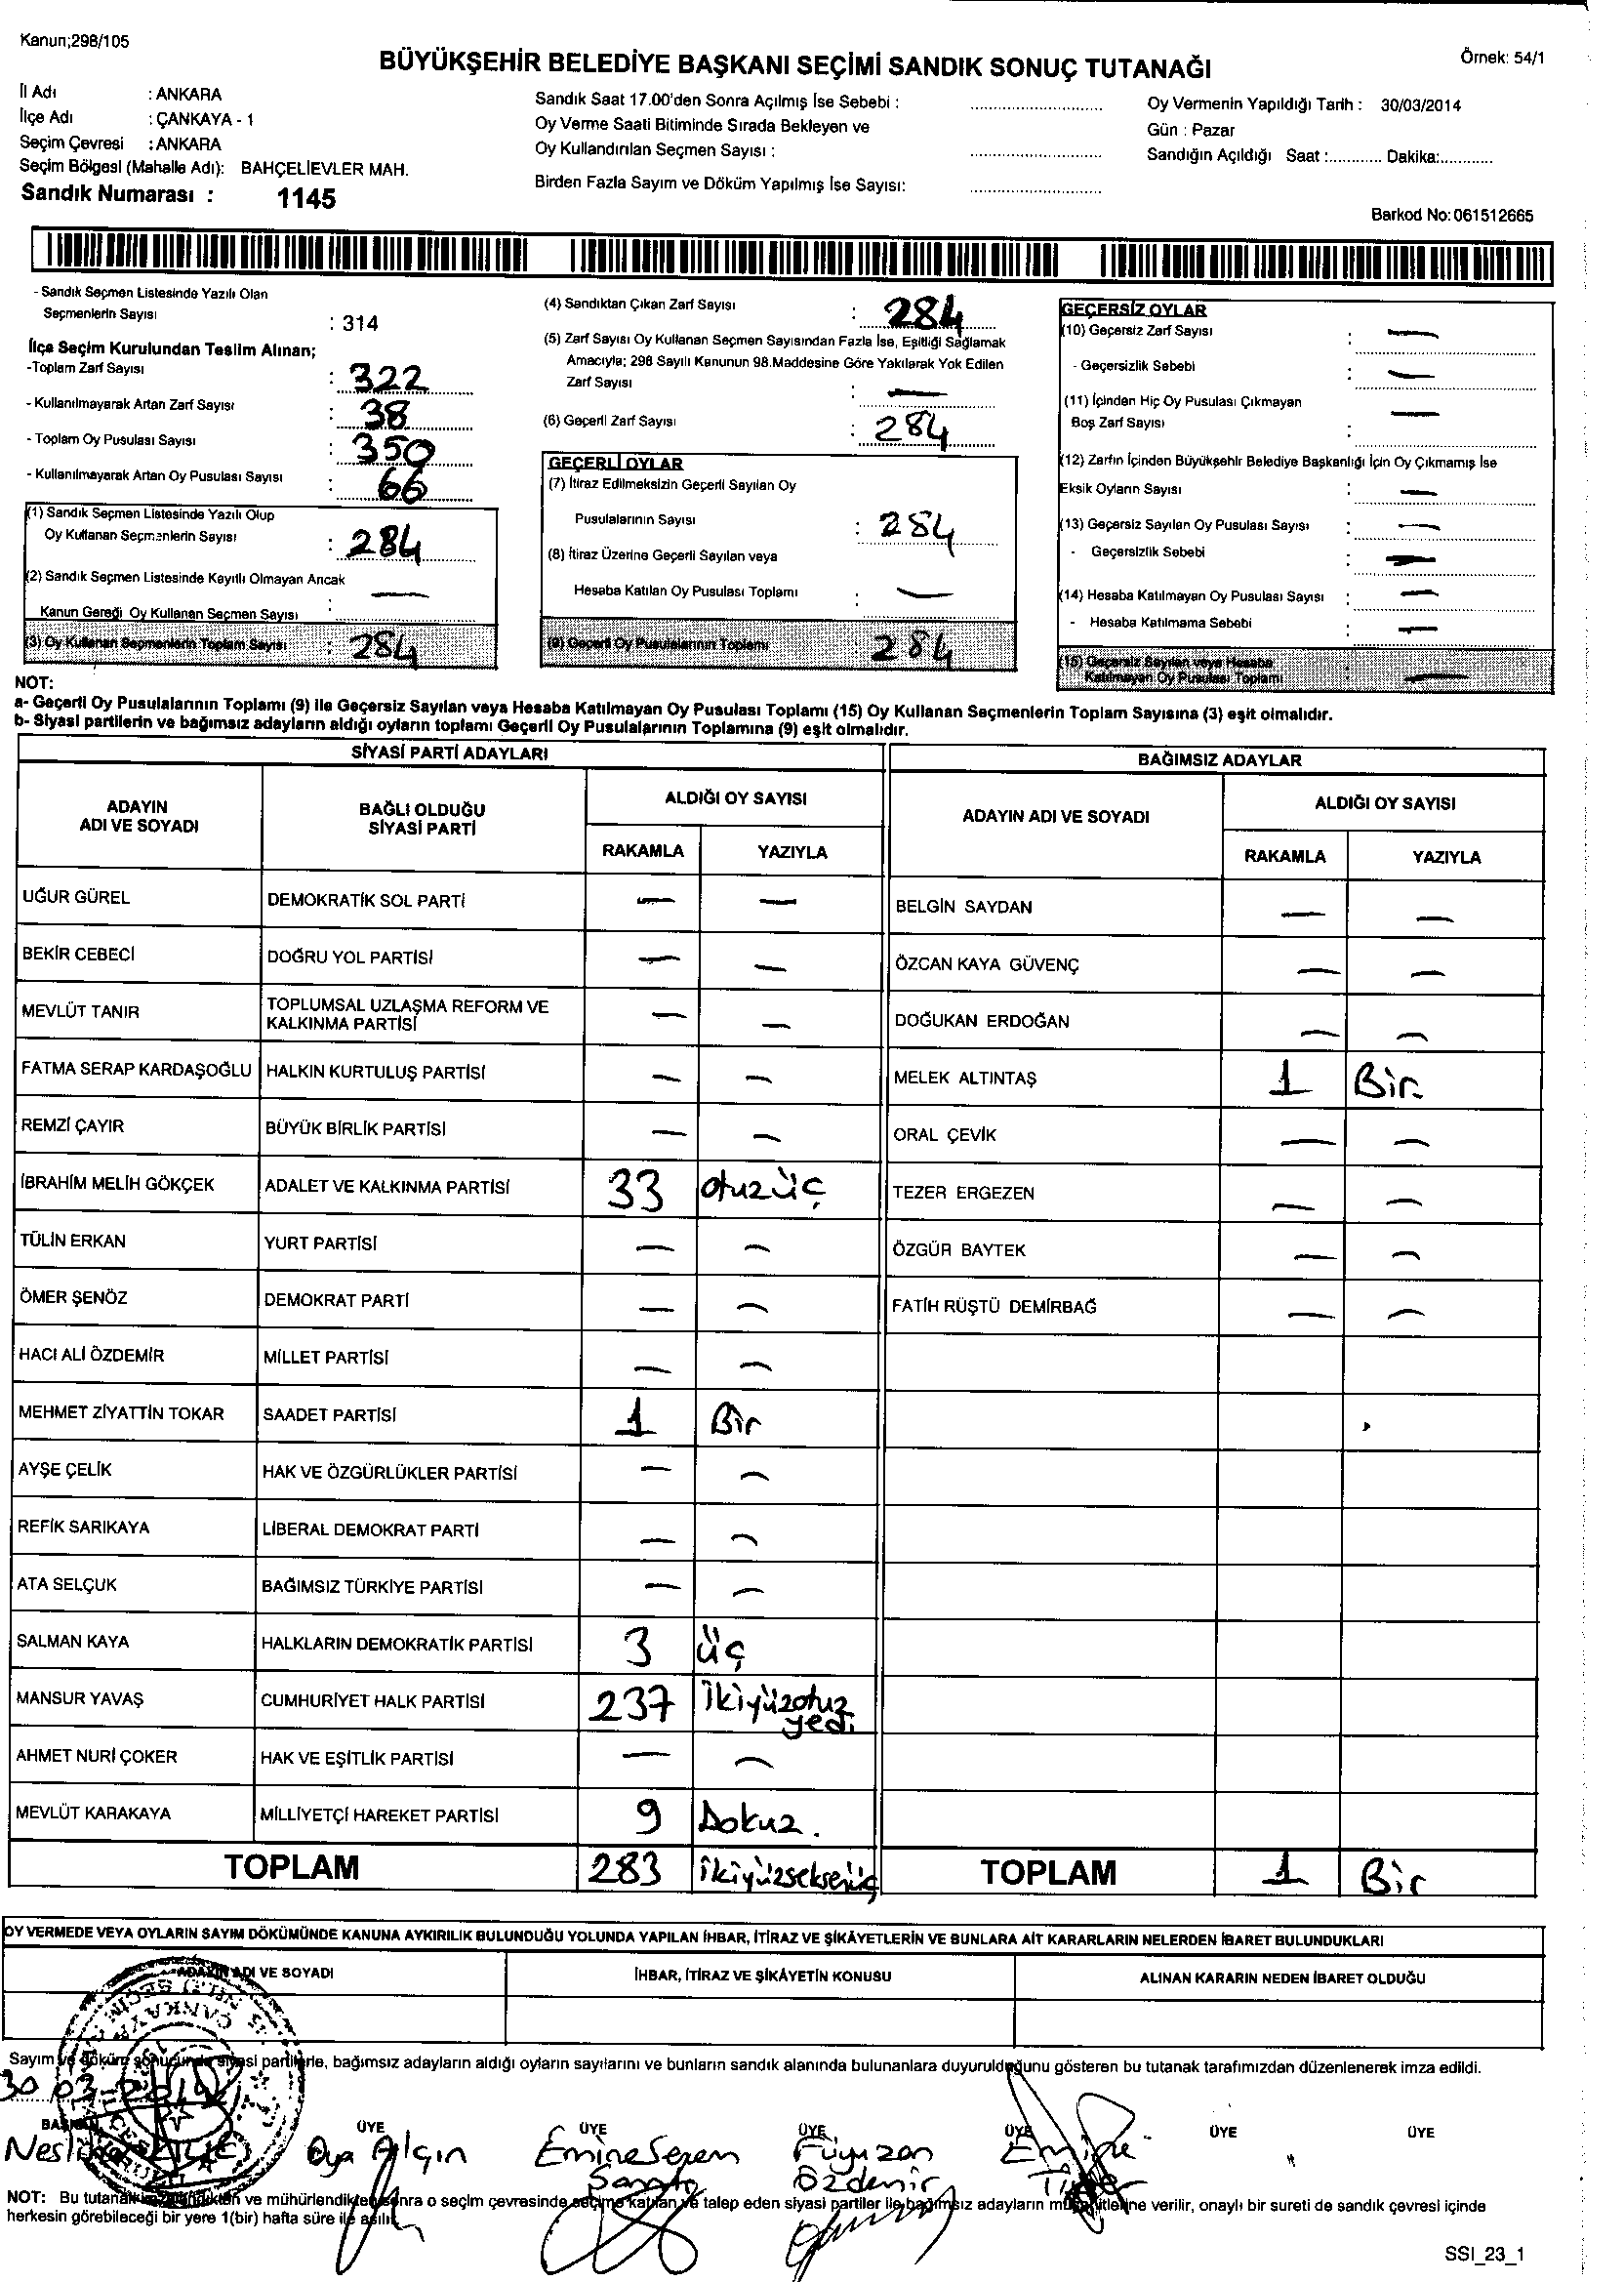 Kanun;298/105
BÜYÜKŞEHİR BELEDİYE BAŞKANI SEÇİMİ SANDIK SONUÇ TUTANAĞI
Örnek: 54/1
İl Adı : ANKARA
İlçe Adı : ÇANKAYA - 1
Seçim Çevresi : ANKARA
Seçim Bölgesi (Mahalle Adı): BAHÇELİEVLER MAH.
Sandık Numarası : 1145
Sandık Saat 17.00'den Sonra Açılmış İse Sebebi :
Oy Verme Saati Bitiminde Sırada Bekleyen ve
Oy Kullandırılan Seçmen Sayısı :
Birden Fazla Sayım ve Döküm Yapılmış İse Sayısı:
Oy Vermenin Yapıldığı Tarih : 30/03/2014
Gün : Pazar
Sandığın Açıldığı Saat :........... Dakika:...........
Barkod No:061512665
- Sandık Seçmen Listesinde Yazılı Olan
Seçmenlerin Sayısı : 314
İlçe Seçim Kurulundan Teslim Alınan;
-Toplam Zarf Sayısı : 322
- Kullanılmayarak Artan Zarf Sayısı : 38
- Toplam Oy Pusulası Sayısı : 350
- Kullanılmayarak Artan Oy Pusulası Sayısı : 66
(1) Sandık Seçmen Listesinde Yazılı Olup
Oy Kullanan Seçmenlerin Sayısı : 284
(2) Sandık Seçmen Listesinde Kayıtlı Olmayan Ancak
Kanun Gereği Oy Kullanan Seçmen Sayısı : —
(3) Oy Kullanan Seçmenlerin Toplam Sayısı : 284
(4) Sandıktan Çıkan Zarf Sayısı : 284
(5) Zarf Sayısı Oy Kullanan Seçmen Sayısından Fazla İse, Eşitliği Sağlamak
Amacıyla; 298 Sayılı Kanunun 98.Maddesine Göre Yakılarak Yok Edilen
Zarf Sayısı : —
(6) Geçerli Zarf Sayısı : 284
GEÇERLİ OYLAR
(7) İtiraz Edilmeksizin Geçerli Sayılan Oy
Pusulalarının Sayısı : 284
(8) İtiraz Üzerine Geçerli Sayılan veya
Hesaba Katılan Oy Pusulası Toplamı : —
(9) Geçerli Oy Pusulalarının Toplamı : 284
GEÇERSİZ OYLAR
(10) Geçersiz Zarf Sayısı : —
- Geçersizlik Sebebi : —
(11) İçinden Hiç Oy Pusulası Çıkmayan
Boş Zarf Sayısı : —
(12) Zarfın İçinden Büyükşehir Belediye Başkanlığı İçin Oy Çıkmamış İse
Eksik Oyların Sayısı : —
(13) Geçersiz Sayılan Oy Pusulası Sayısı : —
- Geçersizlik Sebebi : —
(14) Hesaba Katılmayan Oy Pusulası Sayısı : —
- Hesaba Katılmama Sebebi : —
(15) Geçersiz Sayılan veya Hesaba
Katılmayan Oy Pusulası Toplamı : —
NOT:
a- Geçerli Oy Pusulalarının Toplamı (9) ile Geçersiz Sayılan veya Hesaba Katılmayan Oy Pusulası Toplamı (15) Oy Kullanan Seçmenlerin Toplam Sayısına (3) eşit olmalıdır.
b- Siyasi partilerin ve bağımsız adayların aldığı oyların toplamı Geçerli Oy Pusulalarının Toplamına (9) eşit olmalıdır.
SİYASİ PARTİ ADAYLARI
ADAYIN ADI VE SOYADI
BAĞLI OLDUĞU SİYASİ PARTİ
ALDIĞI OY SAYISI
RAKAMLA YAZIYLA
UĞUR GÜREL DEMOKRATİK SOL PARTİ — —
BEKİR CEBECİ DOĞRU YOL PARTİSİ — —
MEVLÜT TANIR TOPLUMSAL UZLAŞMA REFORM VE KALKINMA PARTİSİ — —
FATMA SERAP KARDAŞOĞLU HALKIN KURTULUŞ PARTİSİ — —
REMZİ ÇAYIR BÜYÜK BİRLİK PARTİSİ — —
İBRAHİM MELİH GÖKÇEK ADALET VE KALKINMA PARTİSİ 33 otuzüç
TÜLİN ERKAN YURT PARTİSİ — —
ÖMER ŞENÖZ DEMOKRAT PARTİ — —
HACI ALİ ÖZDEMİR MİLLET PARTİSİ — —
MEHMET ZİYATTİN TOKAR SAADET PARTİSİ 1 Bir
AYŞE ÇELİK HAK VE ÖZGÜRLÜKLER PARTİSİ — —
REFİK SARIKAYA LİBERAL DEMOKRAT PARTİ — —
ATA SELÇUK BAĞIMSIZ TÜRKİYE PARTİSİ — —
SALMAN KAYA HALKLARIN DEMOKRATİK PARTİSİ 3 üç
MANSUR YAVAŞ CUMHURİYET HALK PARTİSİ 237 ikiyüzotuz yedi
AHMET NURİ ÇOKER HAK VE EŞİTLİK PARTİSİ — —
MEVLÜT KARAKAYA MİLLİYETÇİ HAREKET PARTİSİ 9 Dokuz.
TOPLAM 283 ikiyüzseksenüç
BAĞIMSIZ ADAYLAR
ADAYIN ADI VE SOYADI
ALDIĞI OY SAYISI
RAKAMLA YAZIYLA
BELGİN SAYDAN — —
ÖZCAN KAYA GÜVENÇ — —
DOĞUKAN ERDOĞAN — —
MELEK ALTINTAŞ 1 Bir.
ORAL ÇEVİK — —
TEZER ERGEZEN — —
ÖZGÜR BAYTEK — —
FATİH RÜŞTÜ DEMİRBAĞ — —
TOPLAM 1 Bir
OY VERMEDE VEYA OYLARIN SAYIM DÖKÜMÜNDE KANUNA AYKIRILIK BULUNDUĞU YOLUNDA YAPILAN İHBAR, İTİRAZ VE ŞİKÂYETLERİN VE BUNLARA AİT KARARLARIN NELERDEN İBARET BULUNDUKLARI
ADAYIN ADI VE SOYADI
İHBAR, İTİRAZ VE ŞİKÂYETİN KONUSU
ALINAN KARARIN NEDEN İBARET OLDUĞU
Sayım ve döküm sonucunda siyasi partilerle, bağımsız adayların aldığı oyların sayılarını ve bunların sandık alanında bulunanlara duyurulduğunu gösteren bu tutanak tarafımızdan düzenlenerek imza edildi.
30.03.2014
BAŞKAN ÜYE ÜYE ÜYE ÜYE ÜYE ÜYE
Oya Alçın
Emine Seren
Füyuzan Özdemir
Emine
NOT: Bu tutanak düzenlendikten ve mühürlendikten sonra o seçim çevresinde seçime katılan ve talep eden siyasi partiler ile bağımsız adayların müşahitlerine verilir, onaylı bir sureti de sandık çevresi içinde
herkesin görebileceği bir yere 1(bir) hafta süre ile asılır.
SSI_23_1